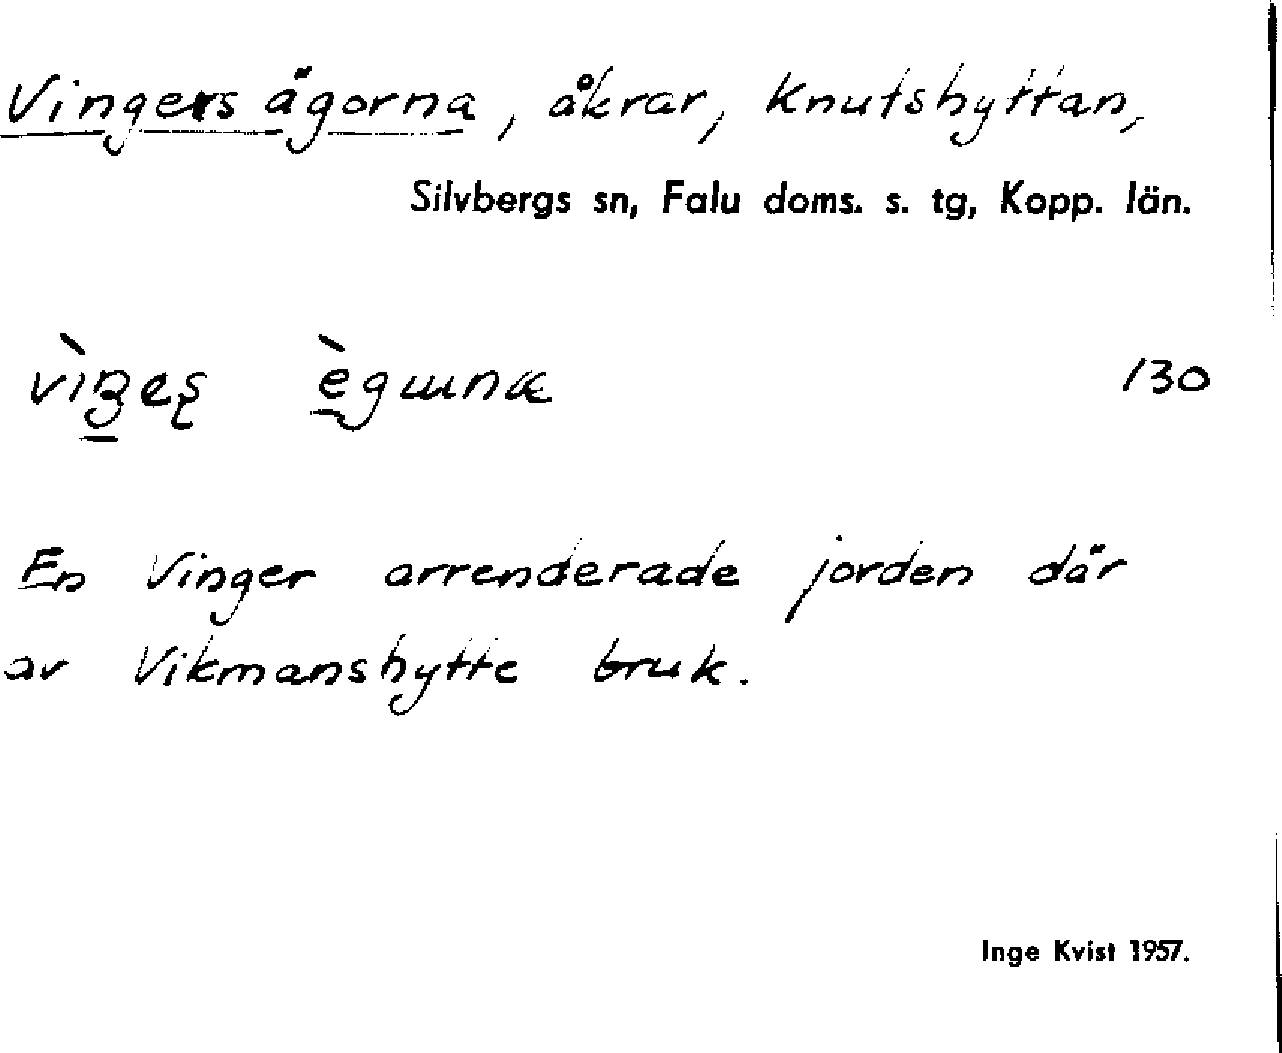 Vingers ägorna, åkrar, Knutshyttan,
Silvbergs sn, Falu doms. s. tg, Kopp. län.
130
En Vinger arrenderade jorden där
av Vikmanshytte bruk.
Inge Kvist 1957.